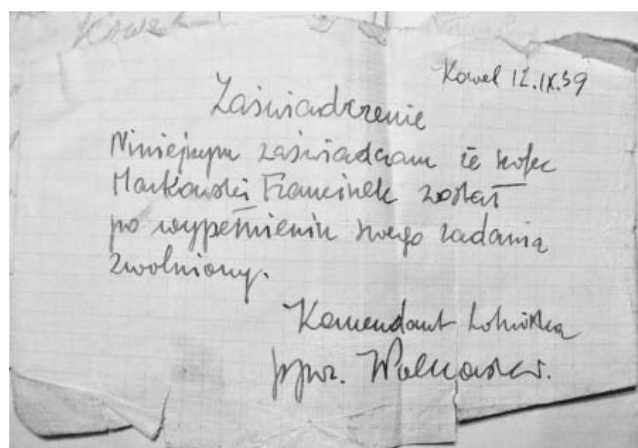 Kowel 12.IX.39
Zaświadczenie
Niniejszym zaświadczam że szofer
Markowski Franciszek został
po wypełnieniu swego zadania
zwolniony.
Komendant Lotniska
ppor.